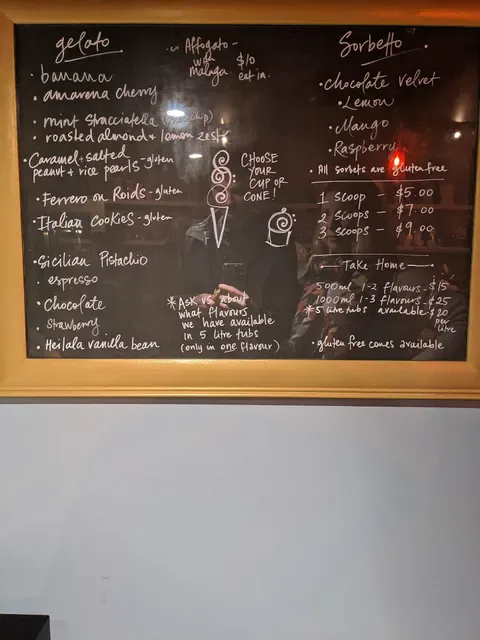 gelato
• banana
• amarena cherry
mint stracciatella (choc chip)
• roasted almond + lemon zest
• Caramel + salted
peanut + rice pearls - gluten
• Ferrero on Roids - gluten
• Italian Cookies - gluten
• Sicilian Pistachio
• espresso
• Chocolate
• Strawberry
• Heilala vanilla bean
- Affogato -
with
malaga
$10
eat in.
CHOOSE
YOUR
CUP OR
CONE!
* Ask us about
what flavours
we have available
in 5 litre tubs
(only in one flavour)
Sorbetto
• Chocolate velvet
• Lemon
• Mango
• Raspberry
• All sorbets are gluten free
1 scoop - $5.00
2 scoops - $7.00
3 scoops - $9.00
Take Home
500ml 1-2 flavours - $15
1000ml 1-3 flavours - $25
* 5 litre tubs available $20
per
litre
• gluten free cones available